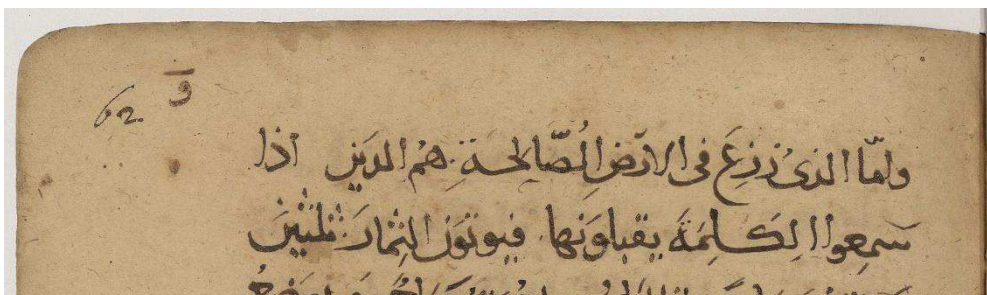 و
62
وامّا الذى زرِعَ فى الارَضِ الصَّالحة. هُم الدَين اذا
سَمِعوا الكَلِمَةَ يقبلوَنها فيوتوَن الثِمَارَ. ثلثيَن